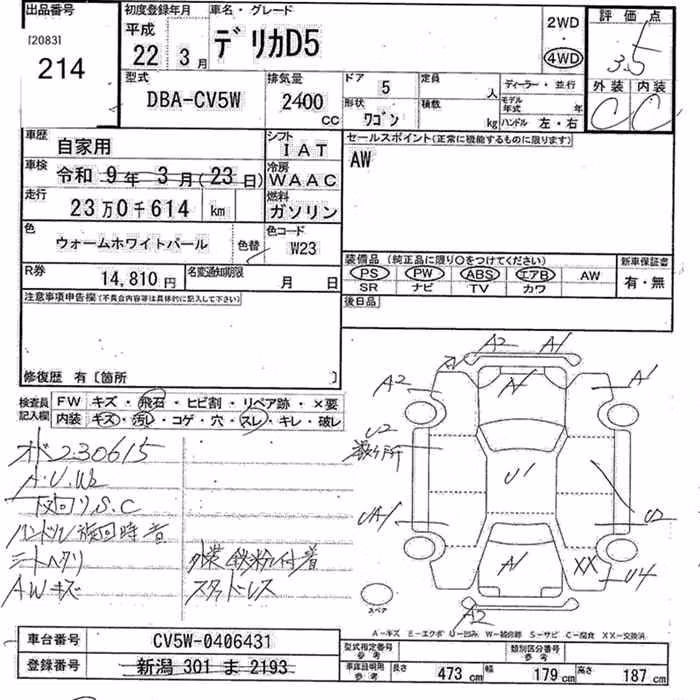 出品番号
[2083]
214
初度登録年月
平成
22 3月
車名・グレード
デリカD5
2WD
4WD
評価点
3.5
外装 内装
C C
型式
DBA-CV5W
排気量
2400 CC
ドア 5
形状 ワゴン
定員 人
積数 kg
ディーラー・並行
モデル年式 年
ハンドル 左・右
車歴 自家用
車検 令和 9年 3月(23日)
走行 23万0千614 km
シフト IAT
冷房 WAAC
燃料 ガソリン
色 ウォームホワイトパール
色替
色コード W23
R券 14,810円
名変通知期限 月 日
セールスポイント(正常に機能するものに限ります)
AW
装備品(純正品に限り○をつけてください)
PS PW ABS エアB AW
SR ナビ TV カワ
新車保証書
有・無
後日品
注意事項申告欄(不具合内容等は具体的に記入して下さい)
修復歴 有〔箇所 〕
検査員記入欄
FW キズ・飛石・ヒビ割・リペア跡・×要
内装 キズ・汚レ・コゲ・穴・スレ・キレ・破レ
オド230615
A.U.W2
下回りS.C
ハンドル旋回時音
シートヘタリ
AWキズ
外装鉄粉付着
スタッドレス
A2 A1
A2 A1
U2
U1
UA1 U2
XX U4
A2
スペア
A-キズ E-エクボ U-凹み W-補修跡 S-サビ C-腐食 XX-交換済
車台番号 CV5W-0406431
登録番号 新潟 301 ま 2193
型式指定番号 参考
類別区分番号 参考
車庫証明用 参考
長さ 473 cm 幅 179 cm 高さ 187 cm